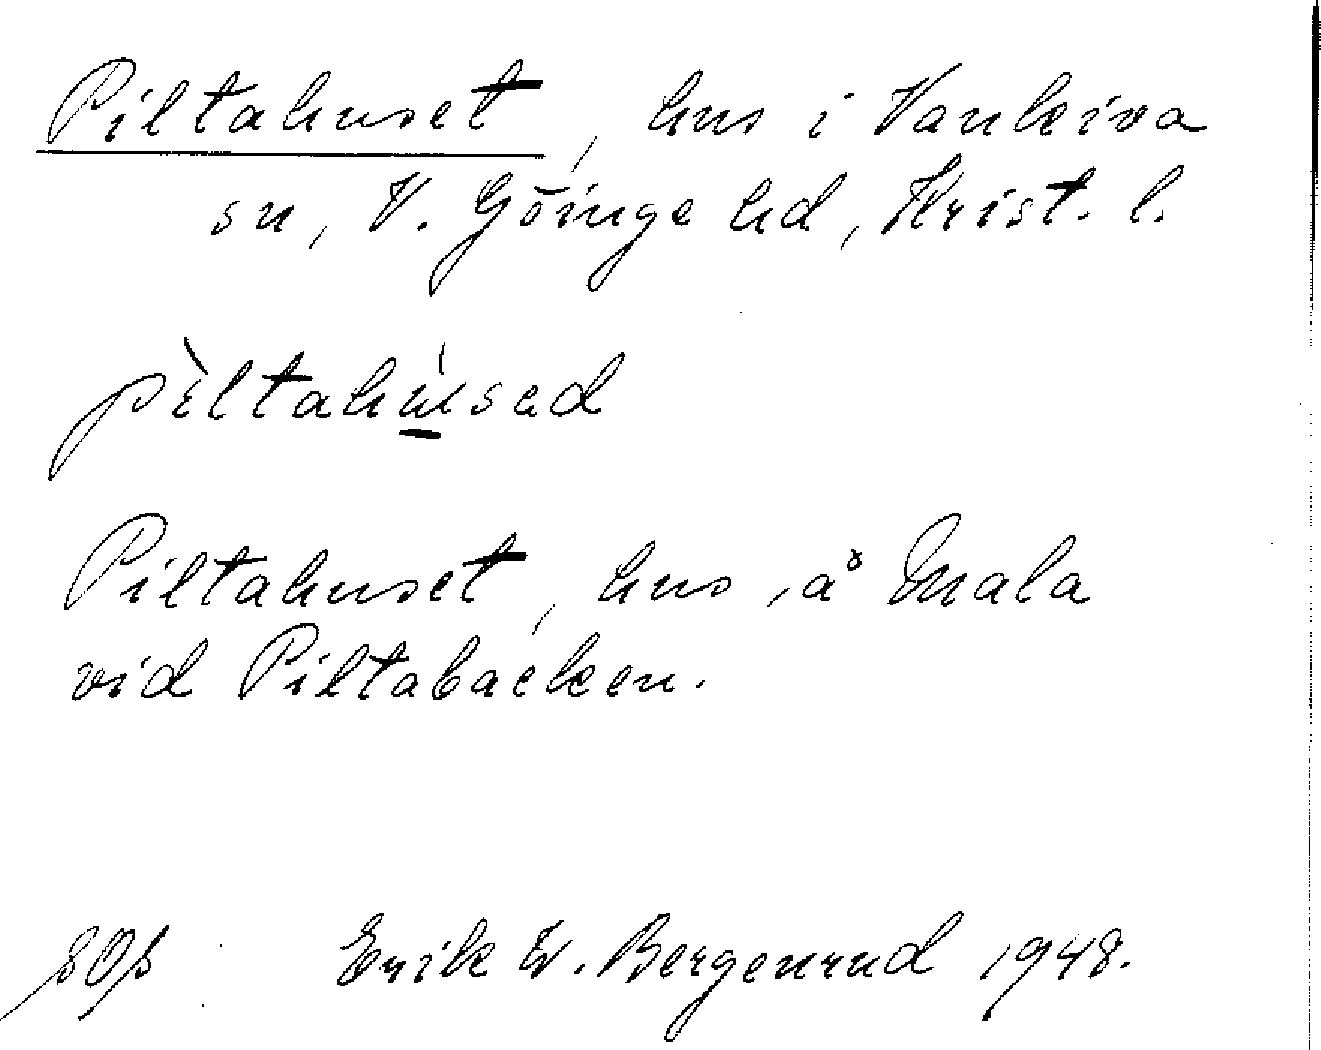 Piltahuset, hus i Vankiva
sn, V. Göinge hd, Krist. l.
pìltahú̲sad
Piltahuset, hus å Mala
vid Piltabacken.
Erik W. Bergenrud 1948.